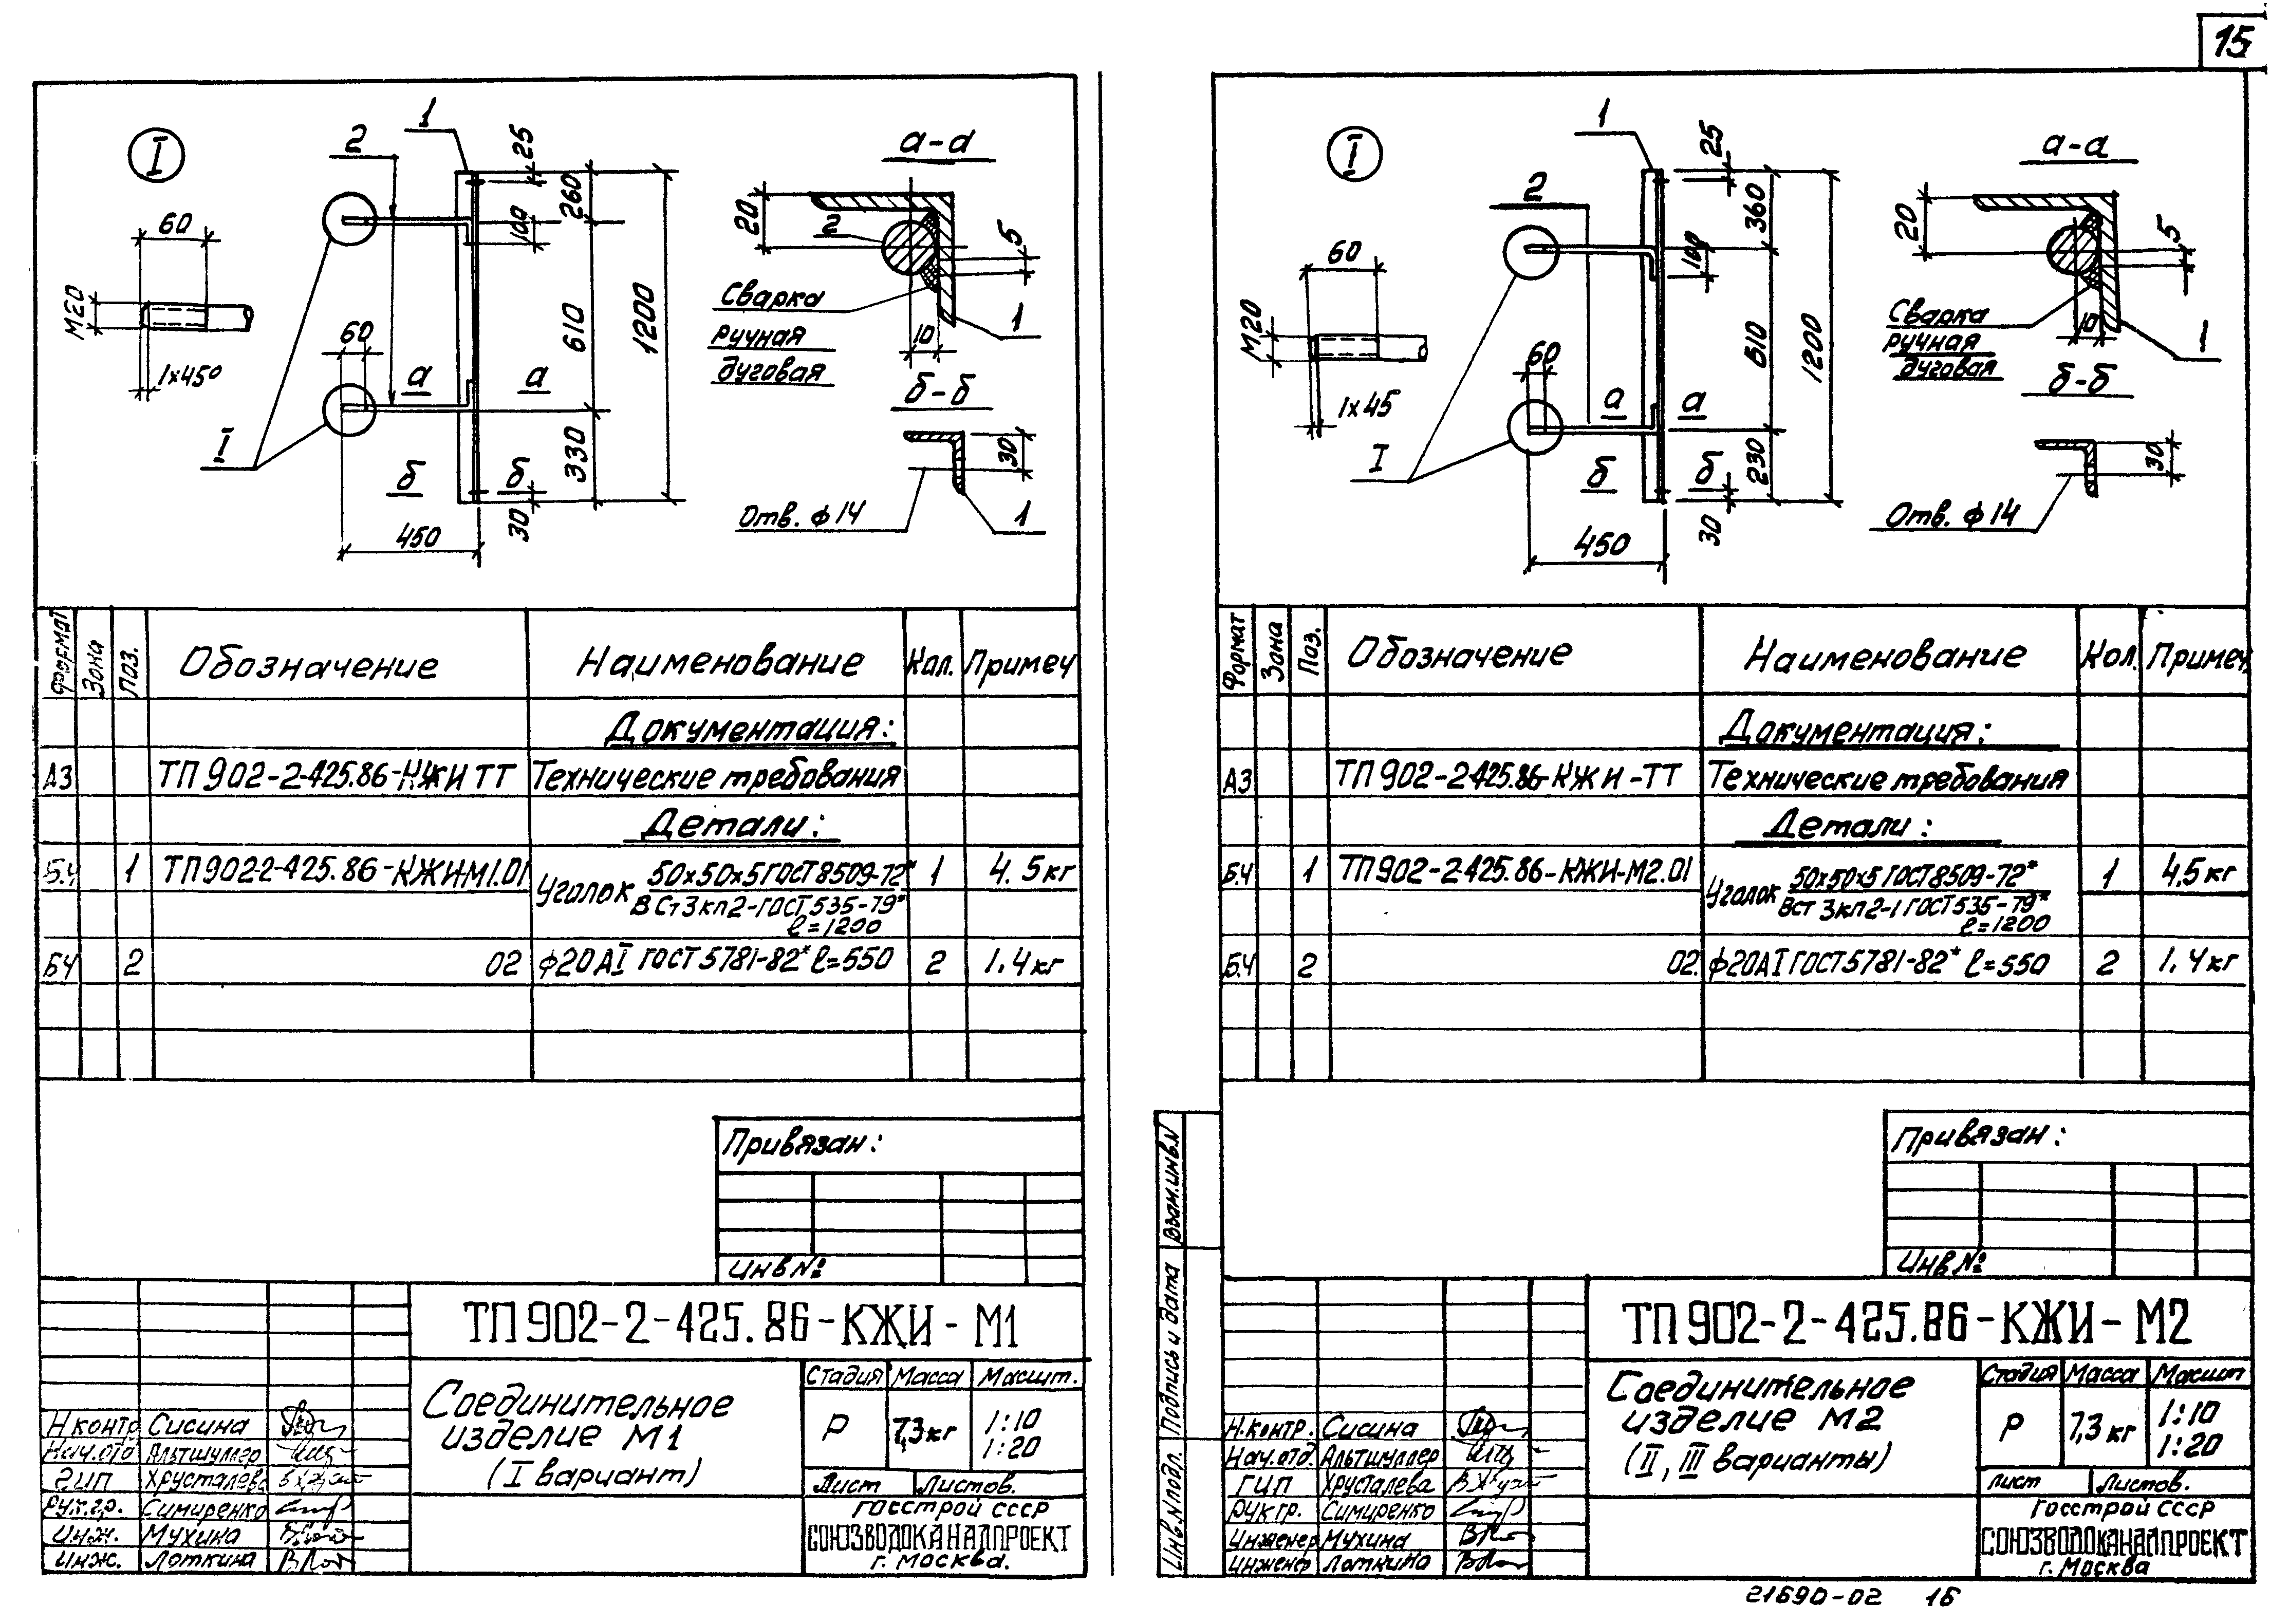 15
I
2
1
25
260
100
610
1200
330
30
450
60
M20
1×45°
60
I
а
а
б
б
а-а
20
2
5
10
1
Сварка
ручная
дуговая
б-б
30
Отв. ф14
1
Формат
Зона
Поз.
Обозначение
Наименование
Кол.
Примеч
Документация:
А3 ТП902-2-425.86-КЖИ ТТ Технические требования
Детали:
Б.Ч 1 ТП902-2-425.86-КЖИМ1.01 Уголок 50×50×5 ГОСТ8509-72* 1 4.5кг
ВСт3кп2-ГОСТ535-79*
ℓ=1200
БЧ 2 02 ф20АI ГОСТ5781-82* ℓ=550 2 1.4кг
Привязан:
Инв №
ТП902-2-425.86-КЖИ-М1
Соединительное
изделие М1
(I вариант)
Стадия Масса Масшт.
Р 7,3кг 1:10
1:20
Лист Листов.
Госстрой СССР
СОЮЗВОДОКАНАЛПРОЕКТ
г. Москва.
Н контр Сисина
Нач.отд Альтшуллер
ГИП Хрусталева
Рук.гр. Симиренко
Инж. Мухина
Инж. Лоткина
I
1
2
25
360
100
610
1200
230
30
450
60
M20
1×45
60
I
а
а
б
б
а-а
20
5
10
1
Сварка
ручная
дуговая
б-б
30
Отв. ф14
Формат
Зона
Поз.
Обозначение
Наименование
Кол.
Примеч
Документация:
А3 ТП902-2-425.86-КЖИ-ТТ Технические требования
Детали:
Б.Ч 1 ТП902-2-425.86-КЖИ-М2.01 Уголок 50×50×5 ГОСТ8509-72* 1 4,5кг
Вст3кп2-1 ГОСТ535-79*
ℓ=1200
Б.Ч 2 02. ф20АI ГОСТ5781-82* ℓ=550 2 1.4кг
Привязан:
Инв №
Взам.инв.N
Подпись и дата
Инв.Nподл.
ТП902-2-425.86-КЖИ-М2
Соединительное
изделие М2
(II, III варианты)
Стадия Масса Масшт
Р 7,3кг 1:10
1:20
Лист Листов.
Госстрой СССР
СОЮЗВОДОКАНАЛПРОЕКТ
г. Москва
Н.контр. Сисина
Нач.отд. Альтшуллер
ГИП Хрусталева
Рук гр. Симиренко
Инженер Мухина
Инженер Лоткина
21690-02 16